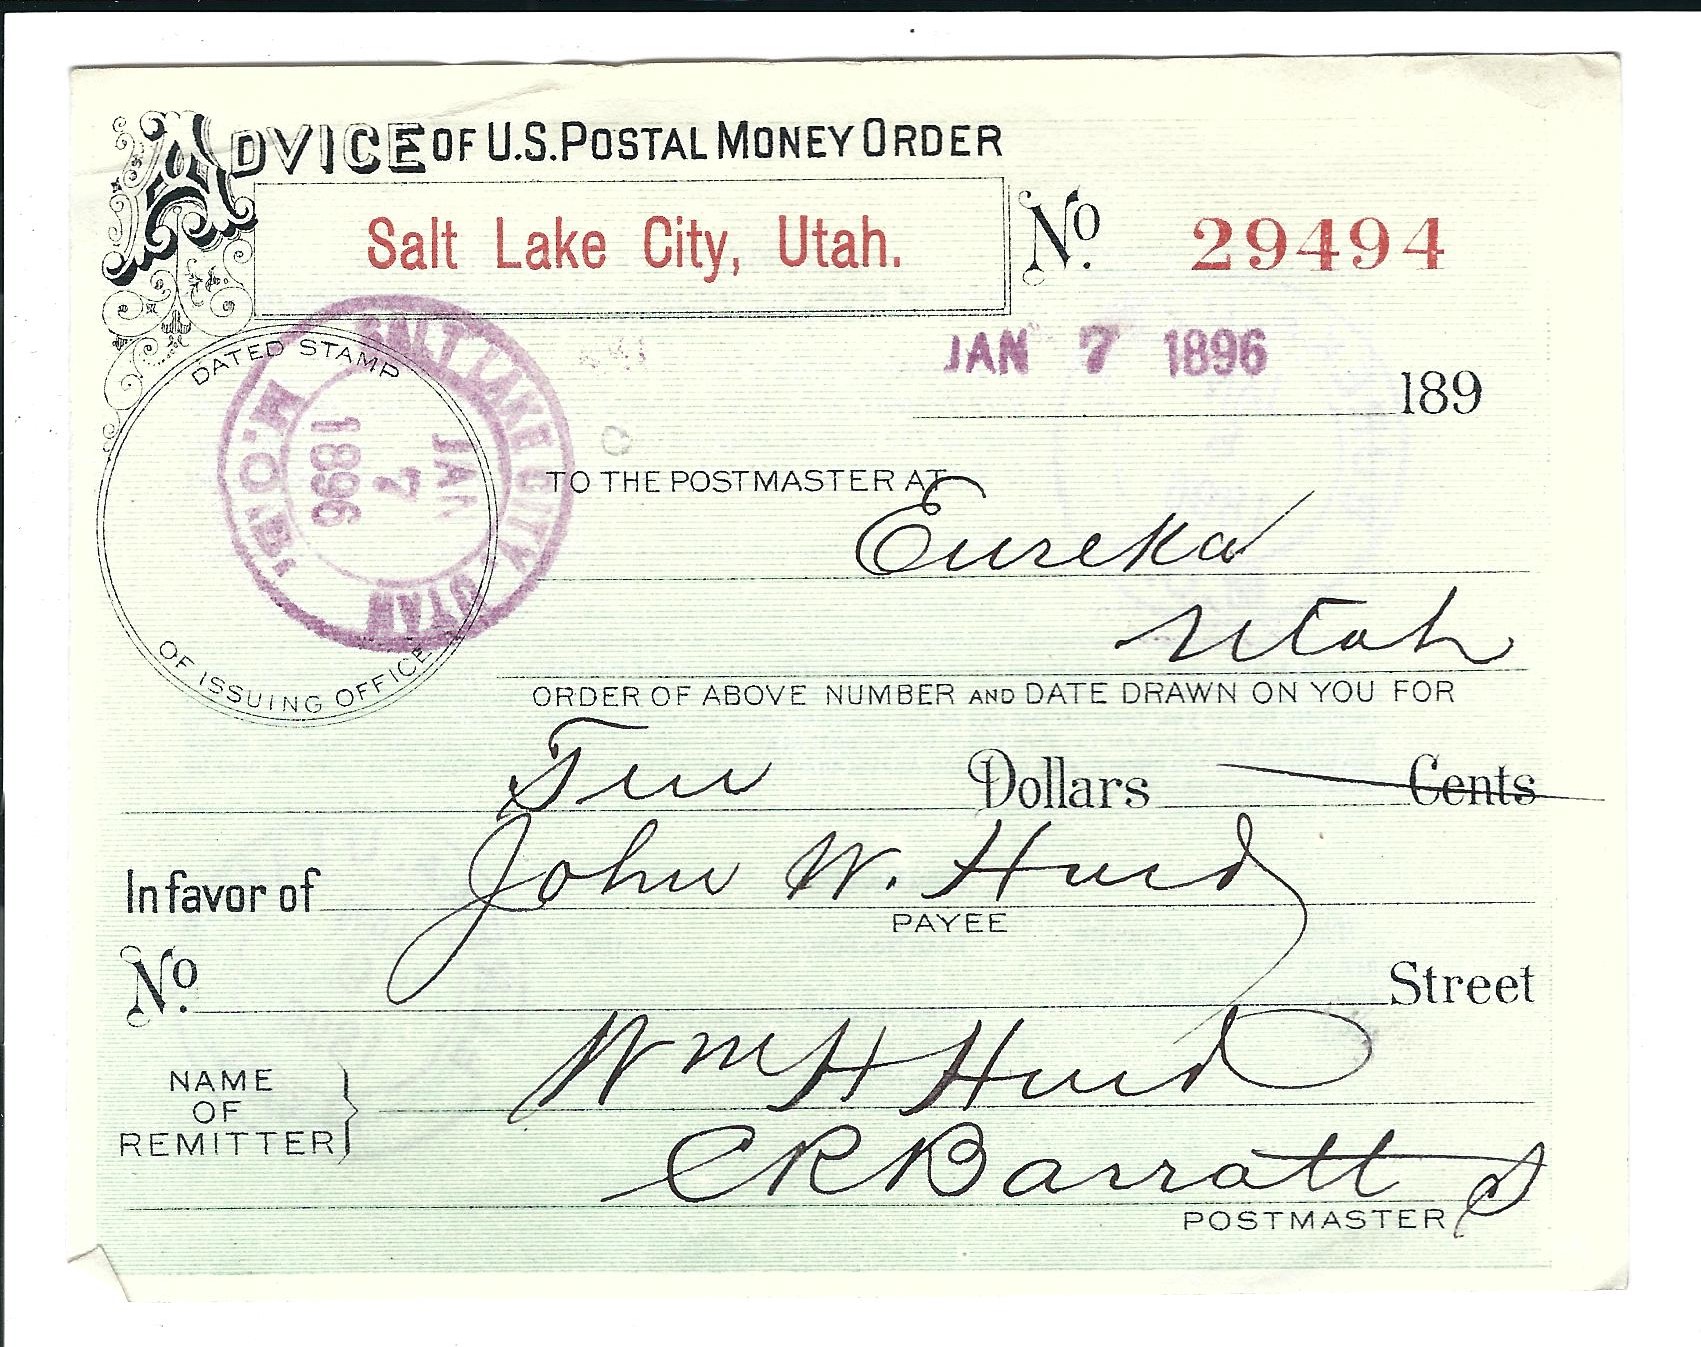 ADVICE OF U.S. POSTAL MONEY ORDER
Salt Lake City, Utah.
No. 29494
JAN 7 1896
189
DATED STAMP
OF ISSUING OFFICE
SALT LAKE CITY UTAH
M.O.B.
JAN
7
1896
TO THE POSTMASTER AT
Eureka
Utah
ORDER OF ABOVE NUMBER AND DATE DRAWN ON YOU FOR
Ten Dollars Cents
In favor of John W. Hurd
PAYEE
No. Street
NAME OF REMITTER } Wm H Hurd
C R Barratt
POSTMASTER